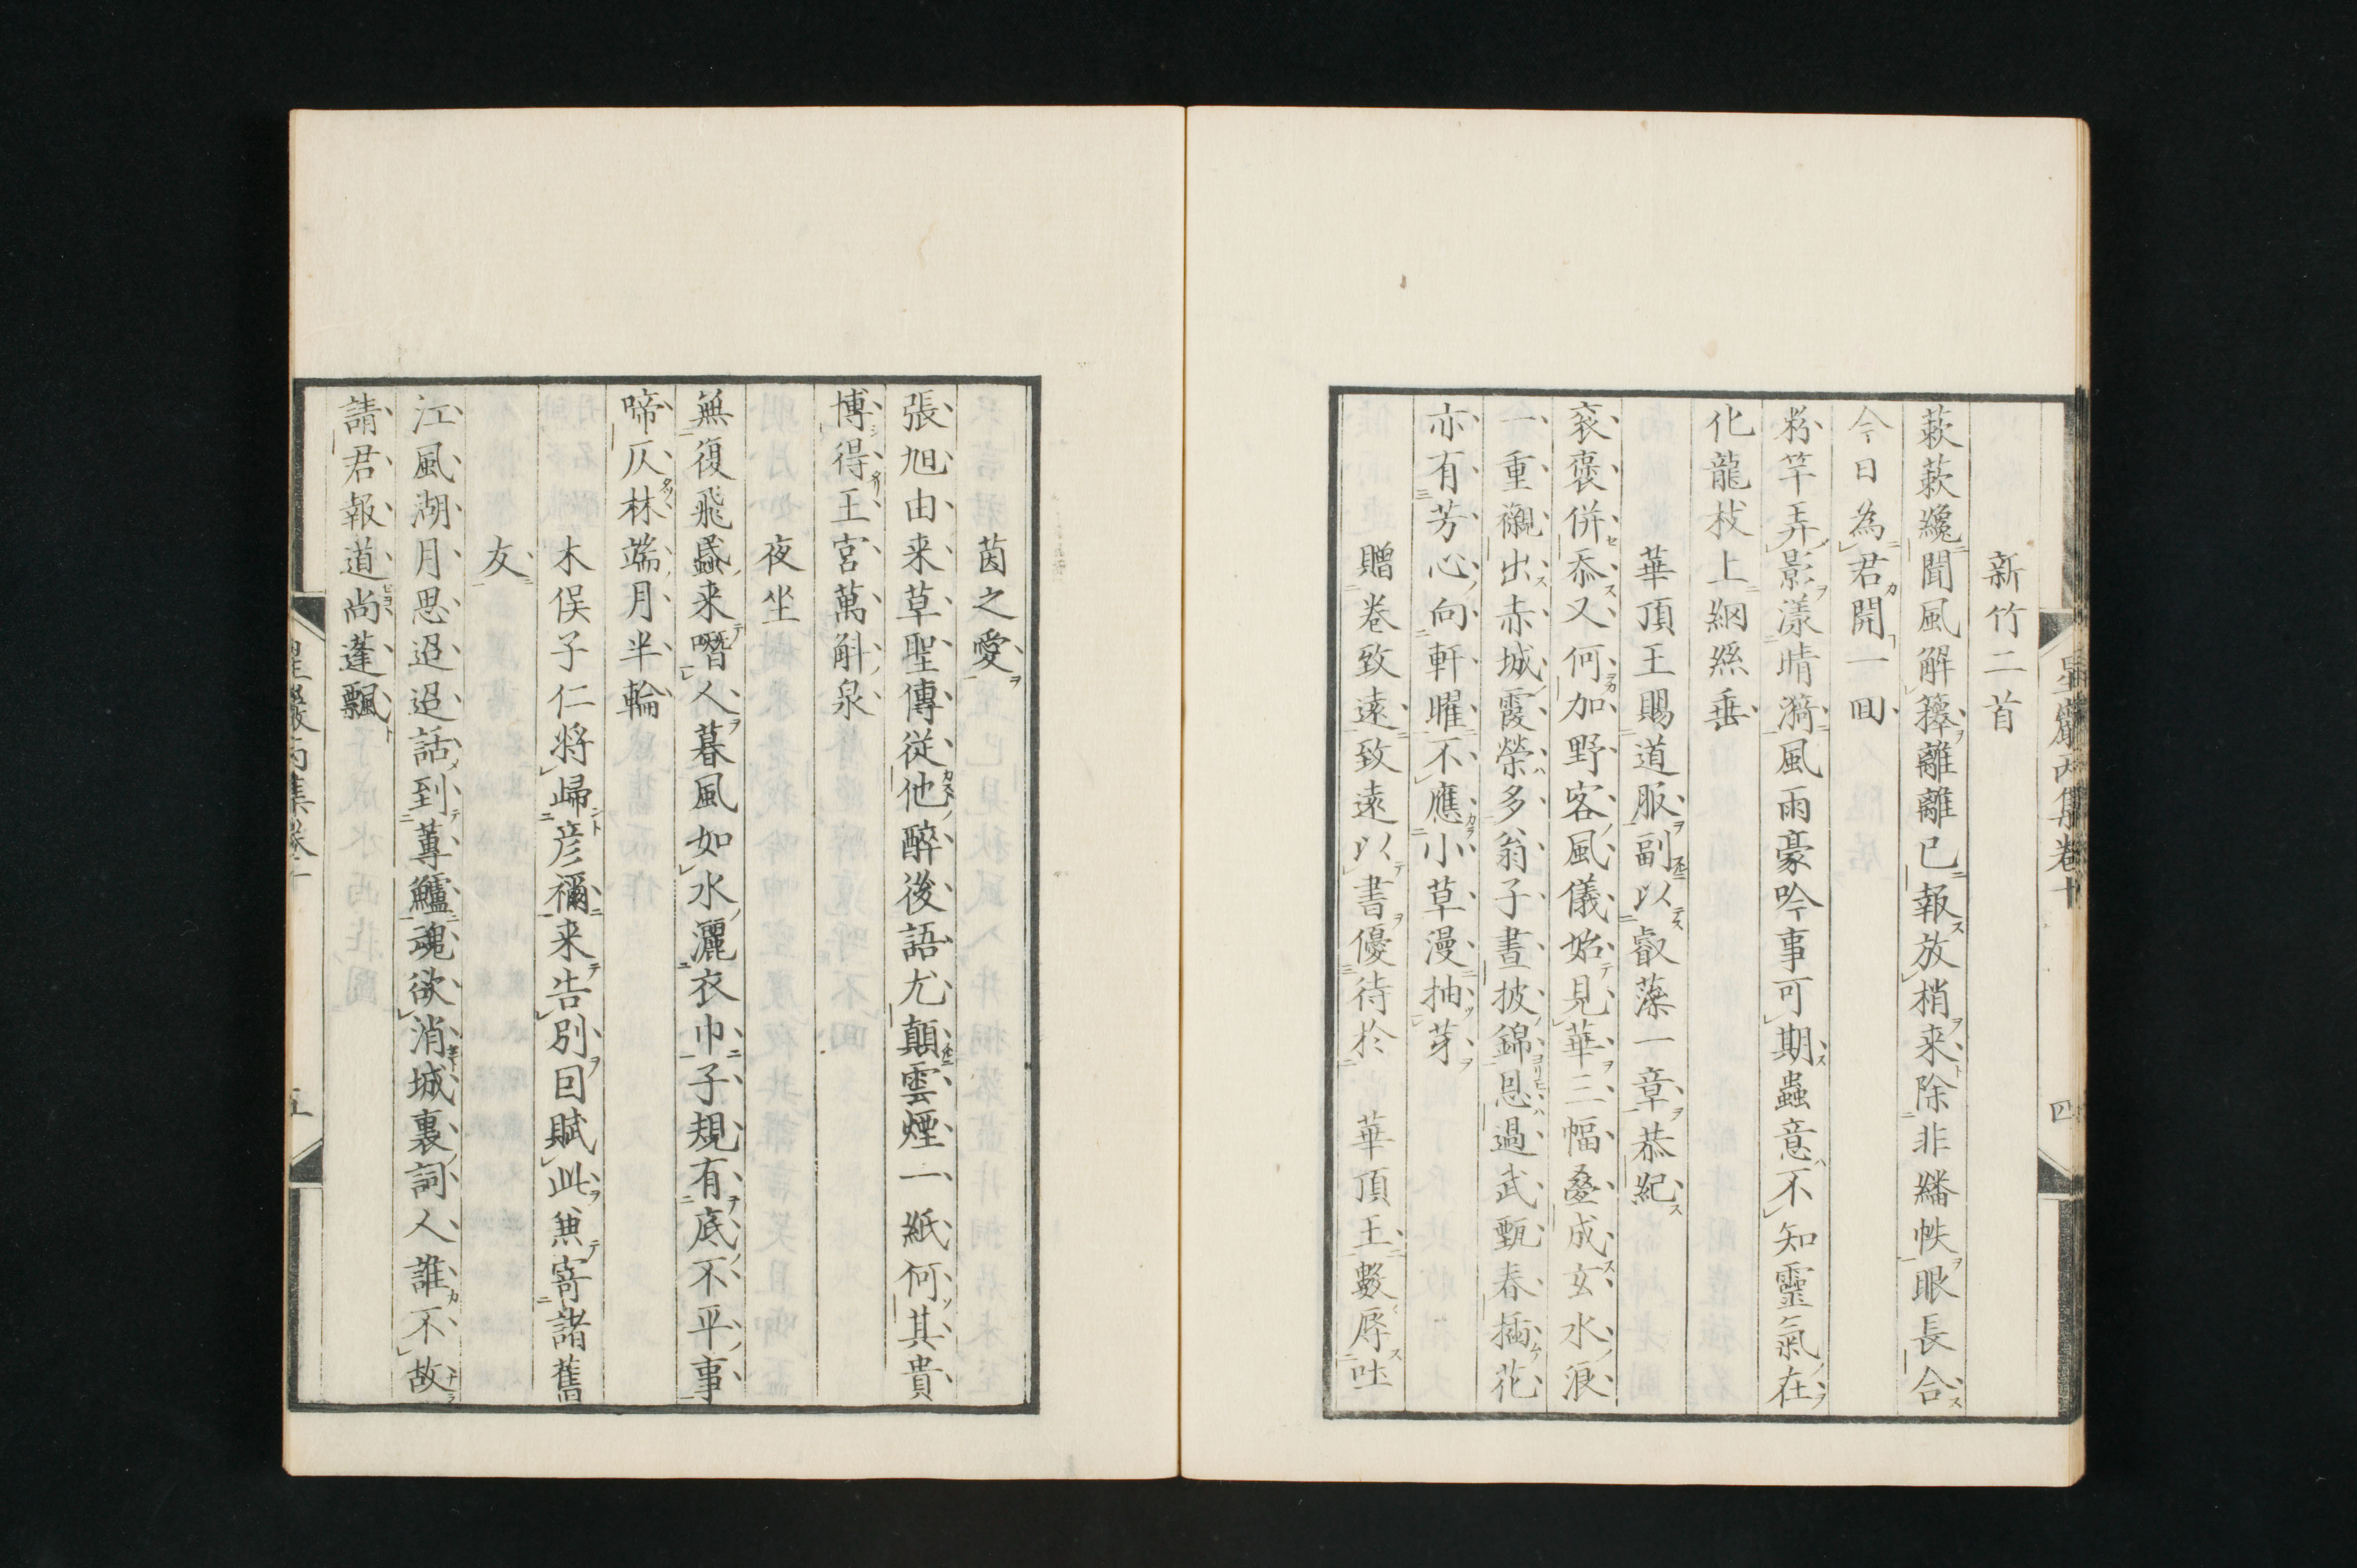 新竹二首
蔌蔌纔聞風解籜離離已報放梢来除非繙帙眼長合
今日為君開一回
粉竿弄影漾晴漪風雨豪吟事可期蟲意不知靈氣在
化龍枝上網絲垂
華頂王賜道服副以叡藻一章恭紀
衮褒併忝又何加野客風儀始見華三幅疊成玄水浪
一重襯出赤城霞榮多翁子晝披錦恩過武甄春插花
亦有芳心向軒曜不應小草漫抽芽
贈卷致遠致遠以書優待於 華頂王數辱吐
星巖丙集卷十 四
茵之愛
張旭由来草聖傳従他醉後語尤顛雲煙一紙何其貴
博得王宮萬斛泉
夜坐
無復飛蟁来噆人暮風如水灑衣巾子規有底不平事
啼仄林端月半輪
木俣子仁将歸彦禰来告別因賦此兼寄諸舊
友
江風湖月思迢迢話到蓴鱸魂欲消城裏詞人誰不故
請君報道尚蓬飄
星巖丙集卷十 五